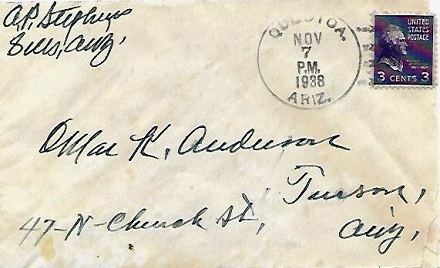 A.P. Stephens
Sells, Ariz,
QUIJOTOA.
NOV
7
P.M.
1938
ARIZ.
UNITED STATES
POSTAGE
3 CENTS 3
Omar K, Anderson
Tucson,
47-N-Church St,
Ariz,